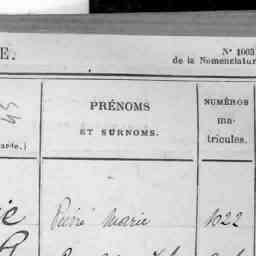 E.
N° 1005
de la Nomenclatur
45
PRÉNOMS
ET SURNOMS.
NUMÉROS
ma-
tricules.
arde.)
ie Pierre Marie 1022